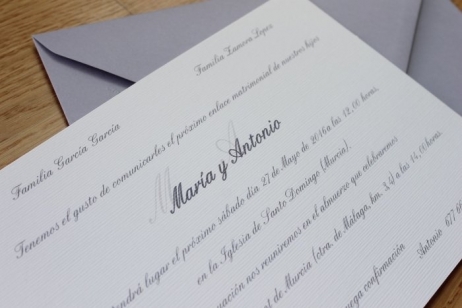 Familia García García
Familia Zamora Lopez
Tenemos el gusto de comunicarles el próximo enlace matrimonial de nuestros hijos
M A
María y Antonio
tendrá lugar el próximo sábado día 27 de Mayo de 2016 a las 12,00 horas,
en la Iglesia de Santo Domingo (Murcia).
nuación nos reuniremos en el almuerzo que celebraremos
de Murcia (ctra. de Málaga, km. 3,4) a las 14,00 horas.
uega confirmación
Antonio 677 60